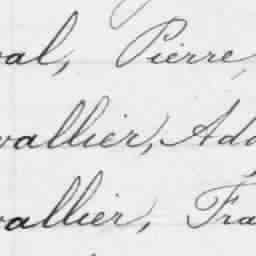 val, Pierre,
vallier, Ado
vallier, Fra